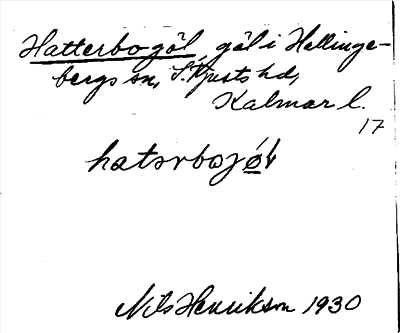 Hatterbogöl, göl i Hallinge-
bergs sn, S. Tjusts hd,
Kalmar l.
17
hatərbojö̀l
Nils Henrikson 1930